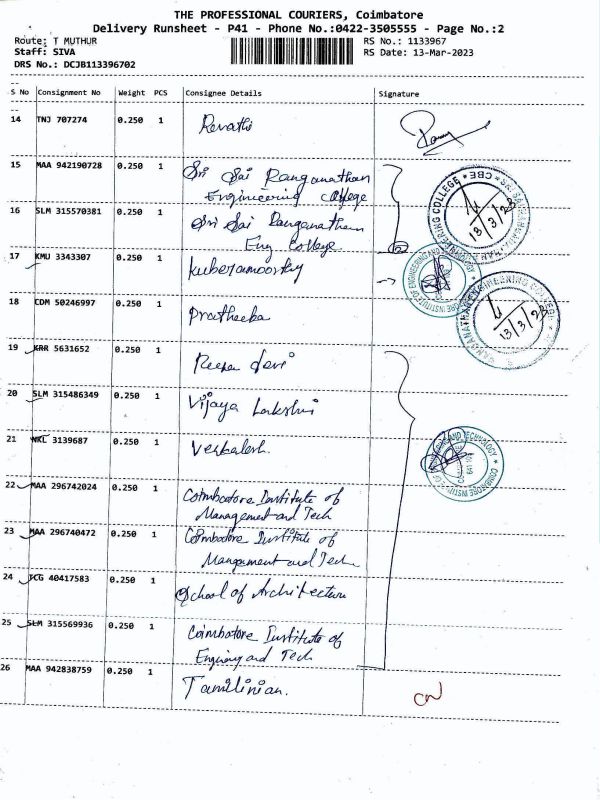 THE PROFESSIONAL COURIERS, Coimbatore
Delivery Runsheet - P41 - Phone No.:0422-3505555 - Page No.:2
Route: T MUTHUR
Staff: SIVA
DRS No.: DCJB113396702
RS No.: 1133967
RS Date: 13-Mar-2023
S No Consignment No Weight PCS Consignee Details Signature
14 TNJ 707274 0.250 1 Revathi
15 MAA 942190728 0.250 1 Sri Sai Ranganathan
Engineering College
16 SLM 315570381 0.250 1 Sri Sai Ranganathan
Eng College
17 KMU 3343307 0.250 1 Kuberamoorthy
18 CDM 50246997 0.250 1 Pratheeka
19 KRR 5631652 0.250 1 Reena devi
20 SLM 315486349 0.250 1 Vijaya Lakshmi
21 NKL 3139687 0.250 1 Venkatesh.
22 MAA 296742024 0.250 1 Coimbatore Institute of
Management and Tech
23 MAA 296740472 0.250 1 Coimbatore Institute of
Management and Tech
24 JCG 40417583 0.250 1 School of Architecture
25 SLM 315569936 0.250 1 Coimbatore Institute of
Enginring and Tech
26 MAA 942838759 0.250 1 Tamilinian.
13/3/23
13/3/23